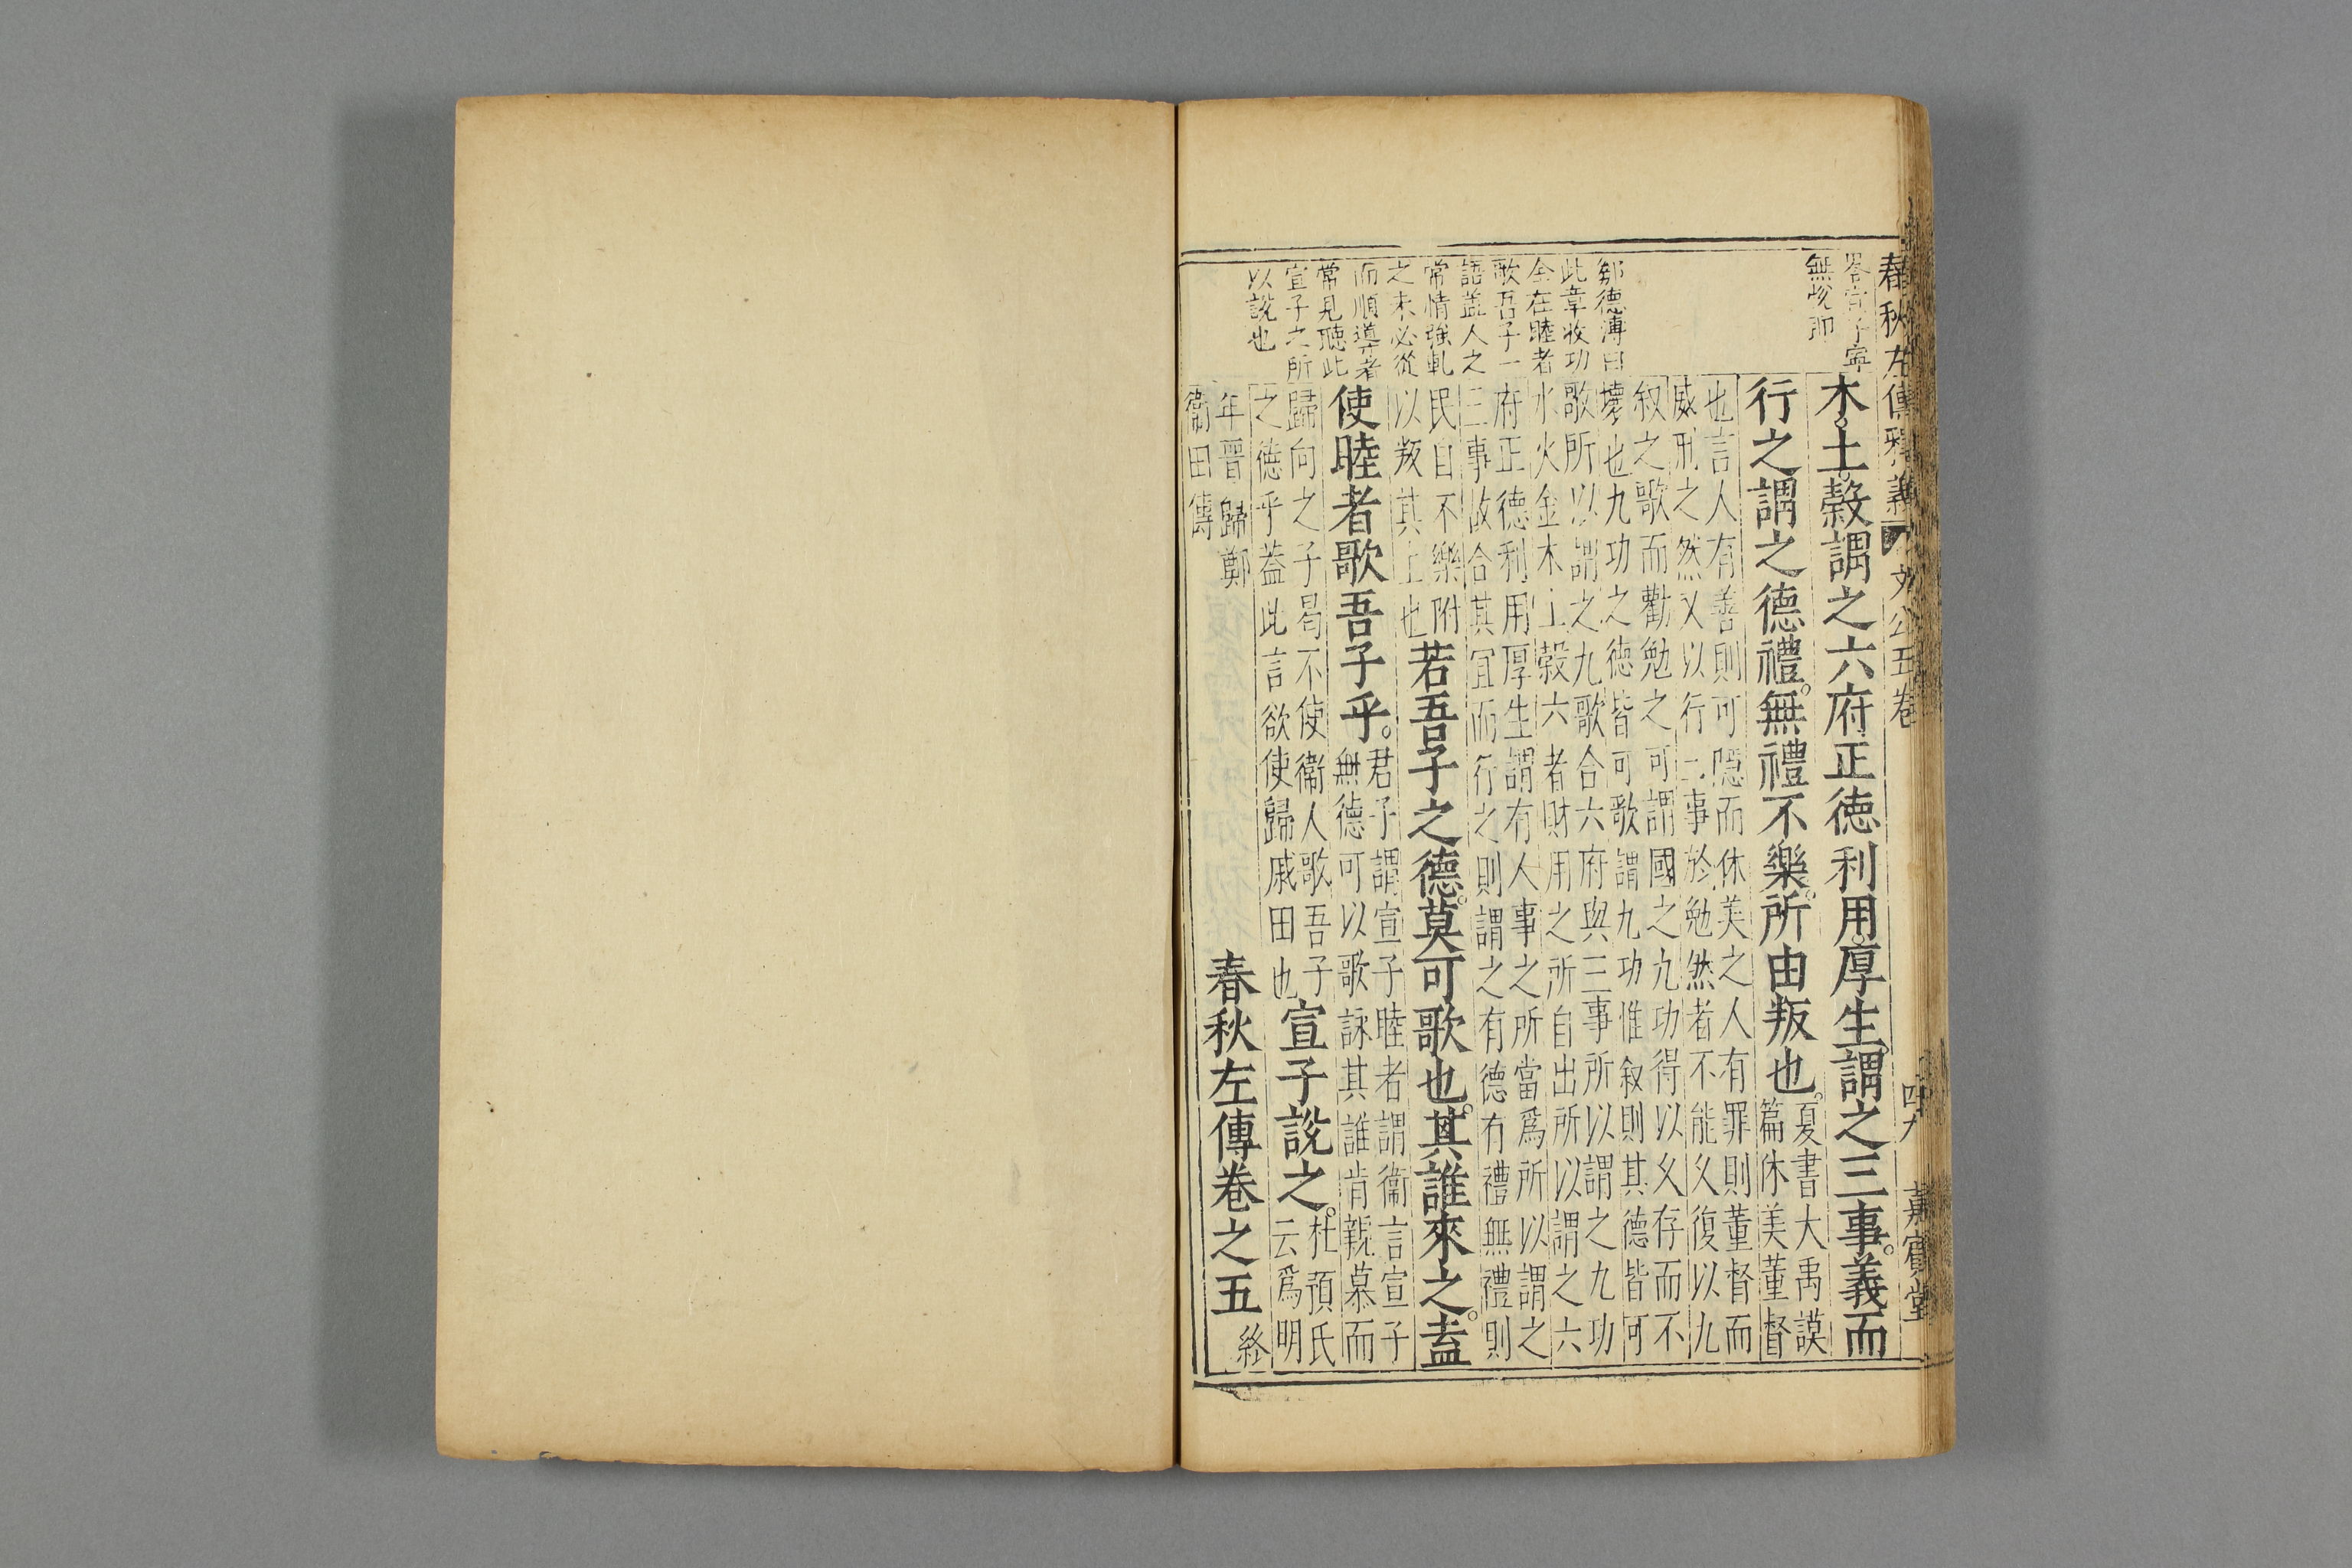 春秋左傳釋義 文公五卷 四九 嘉賓堂
無
鄒德溥曰
此章收功
全在睦者
歌吾子一
語蓋人之
常情強軋
之未必從
而順導者
常見聽此
宣子之所
以說也
木。土。榖謂之六府正德利用。厚生。謂之三事。義而
行之謂之德禮。無禮不樂。所由叛也。
夏書大禹謨
篇休美董督
也言人有善則可隱而休美之人有罪則董督而
威刑之然又以行二事於勉然者不能久復以九
叙之歌而勸勉之可謂國之九功得以久存而不
壞也九功之德皆可歌謂九功惟叙則其德皆可
歌所以謂之九歌合六府與三事所以謂之九功
水火金木土榖六者財用之所自出所以謂之六
府正德利用厚生謂有人事之所當爲所以謂之
三事故合其宜而行之則謂之有德有禮無禮則
民自不樂附
以叛其上也
若吾子之德。莫可歌也。其誰來之。盍
使睦者歌吾子乎。
君子謂宣子睦者謂衞言宣子
無德可以歌詠其誰肯親慕而
歸向之子曷不使衞人歌吾子
之德乎蓋此言欲使歸戚田也
宣子說之。
杜預氏
云爲明
年晉歸鄭
衞田傳
春秋左傳卷之五 終